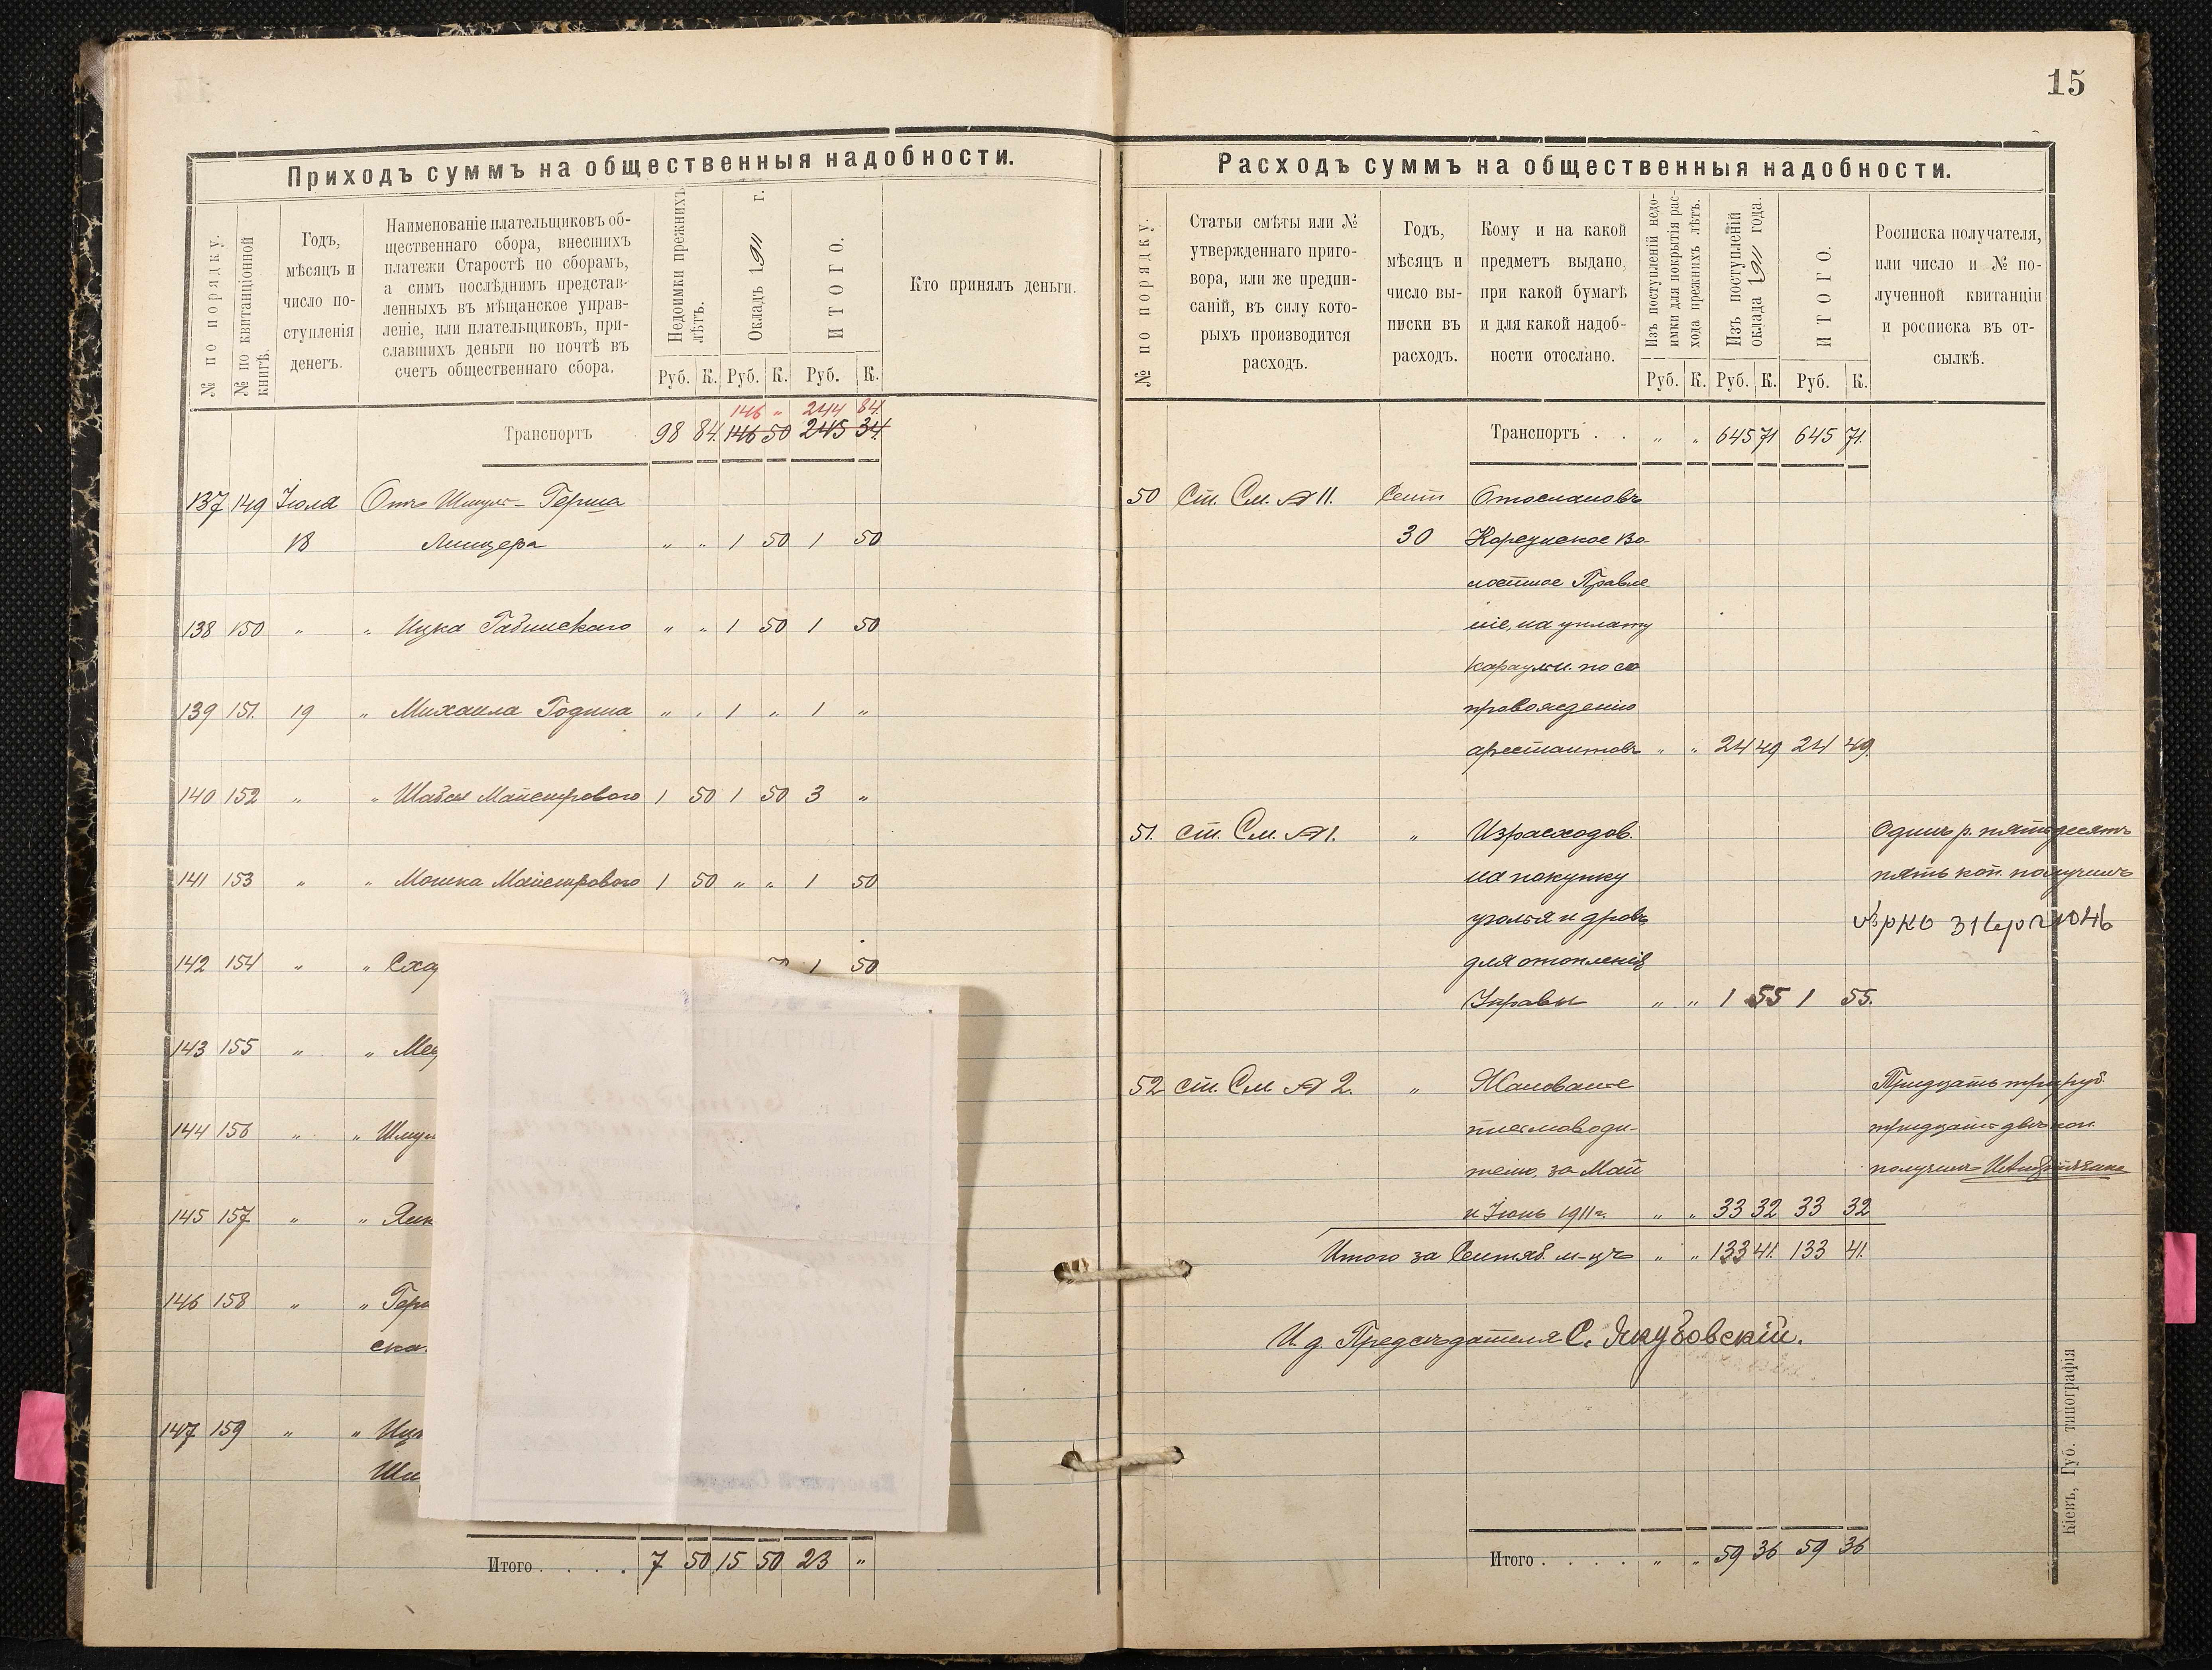 15
Приходъ суммъ на общественныя надобности.
№ по порядку.
№ по квитанціонной
книгѣ.
Годъ,
мѣсяцъ и
число по-
ступленія
денегъ.
Наименованіе плательщиковъ об-
щественнаго сбора, внесшихъ
платежи Старостѣ по сборамъ,
а симъ послѣднимъ представ-
ленныхъ въ мѣщанское управ-
леніе, или плательщиковъ, при-
славшихъ деньги по почтѣ въ
счетъ общественнаго сбора.
Недоимки прежнихъ
лѣтъ.
Окладъ 1911 г.
ИТОГО.
Кто принялъ деньги.
Руб. К. Руб. К. Руб. К.
146 „ 244 84.
Транспортъ 98 84. 146 50 245 34.
137 149 Іюля Отъ Шмуля-Герша
18 „ „ 1 50 1 50
138 150 „ „ Ицка Рабинскаго „ „ 1 50 1 50
139 151. 19 „ Михаила Година „ „ 1 „ 1 „
140 152 „ „ Шабся Майстрового 1 50 1 50 3 „
141 153 „ „ Мошка Майстрового 1 50 „ „ 1 50
142 154 „ „ 1 50
143 155 „ „
144 156 „ „ Шмул
145 157 „ „ Янк
146 158 „ „ Герш
ска
147 159 „ „ Ицк
Итого . . . . 7 50 15 50 23 „
Расходъ суммъ на общественныя надобности.
№ по порядку.
Статьи смѣты или №
утвержденнаго приго-
вора, или же предпи-
саній, въ силу кото-
рыхъ производится
расходъ.
Годъ,
мѣсяцъ и
число вы-
писки въ
расходъ.
Кому и на какой
предметъ выдано,
при какой бумагѣ
и для какой надоб-
ности отослано.
Изъ поступленій недо-
имки для покрытія рас-
хода прежнихъ лѣтъ.
Изъ поступленій
оклада 1911 года.
ИТОГО.
Росписка получателя,
или число и № по-
лученной квитанціи
и росписка въ от-
сылкѣ.
Руб. К. Руб. К. Руб. К.
Транспортъ . . „ „ 645 71 645 71.
50 Ст. См. № 11. Сент Отослано въ
30 Корецкое Во-
лостное Правле-
ніе, на уплату
караульн. по со
провожденію
арестантовъ „ „ 24 49 24 49.
51. ст. См. № 1. „ Израсходов. Одинъ р. пятьдесятъ
на покупку пять коп. получилъ
уголья и дровъ
для отопленія
Управы „ „ 1 55 1 55.
52 ст. См № 2. „ Жалованье Тридцать три руб.
письмоводи- тридцать двѣ коп.
телю, за Май получилъ
и Іюнь 1911 г. „ „ 33 32 33 32
Итого за Сентяб. м-цъ „ „ 133 41. 133 41.
И. д. Предсѣдателя С. Якубовскій.
Итого . . . . „ „ 59 36 59 36
Кіевъ, Губ. типографія